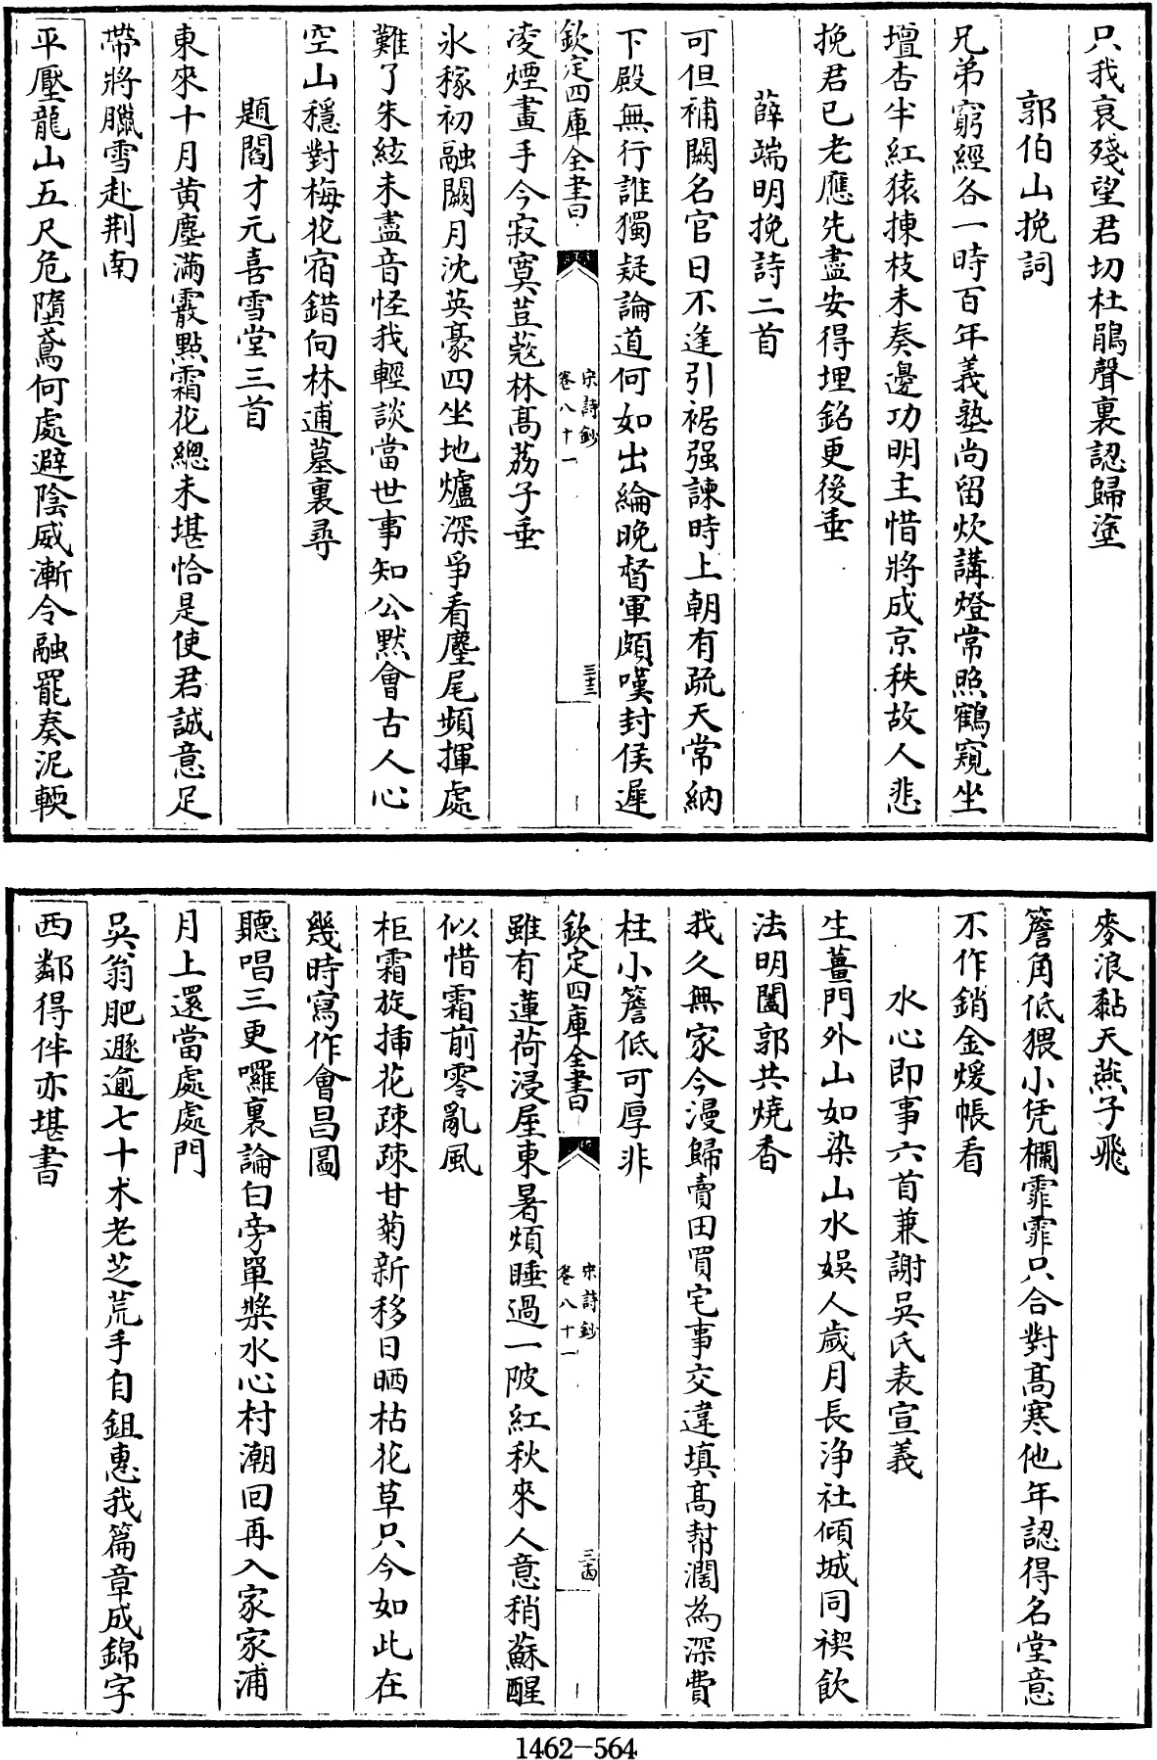 只我衰殘望君切杜鵑聲裏認歸塗
郭伯山挽詞
兄弟窮經各一時百年義塾尚留炊講燈常照鶴窺坐
壇杏半紅猿揀枝未奏邊功明主惜將成京秩故人悲
挽君已老應先盡安得埋銘更後垂
薛端明挽詩二首
可但補闕名官日不逢引裾强諫時上朝有疏天常納
下殿無行誰獨疑論道何如出綸晚督軍頗嘆封侯遲
欽定四庫全書
宋詩鈔
卷八十一
三十三
凌煙畫手今寂寞荳蔻林髙荔子垂
氷稼初融闕月沈英豪四坐地爐深爭看麈尾頻揮處
難了朱絃未盡音怪我輕談當世事知公黙會古人心
空山穩對梅花宿錯向林逋墓裏尋
題閻才元喜雪堂三首
東來十月黄塵滿霰點霜花總未堪恰是使君誠意足
帶將臘雪赴荆南
平壓龍山五尺危墮鳶何處避陰威漸令融罷奏泥輭
麥浪黏天燕子飛
簷角低猥小凭欄霏霏只合對髙寒他年認得名堂意
不作銷金煖帳看
水心即事六首兼謝吳氏表宣義
生薑門外山如染山水娯人歲月長浄社傾城同禊飲
法明闔郭共燒香
我久無家今漫歸賣田買宅事交違填髙幇濶為深費
柱小簷低可厚非
欽定四庫全書
宋詩鈔
卷八十一
三十四
雖有蓮荷浸屋東暑煩睡過一陂紅秋來人意稍蘇醒
似惜霜前零亂風
柜霜旋揷花疎疎甘菊新移日晒枯花草只今如此在
幾時寫作會昌圖
聽唱三更囉裏論白旁單槳水心村潮回再入家家浦
月上還當處處門
吳翁肥遯逾七十朮老芝荒手自鉏惠我篇章成錦字
西鄰得伴亦堪書
1462-564